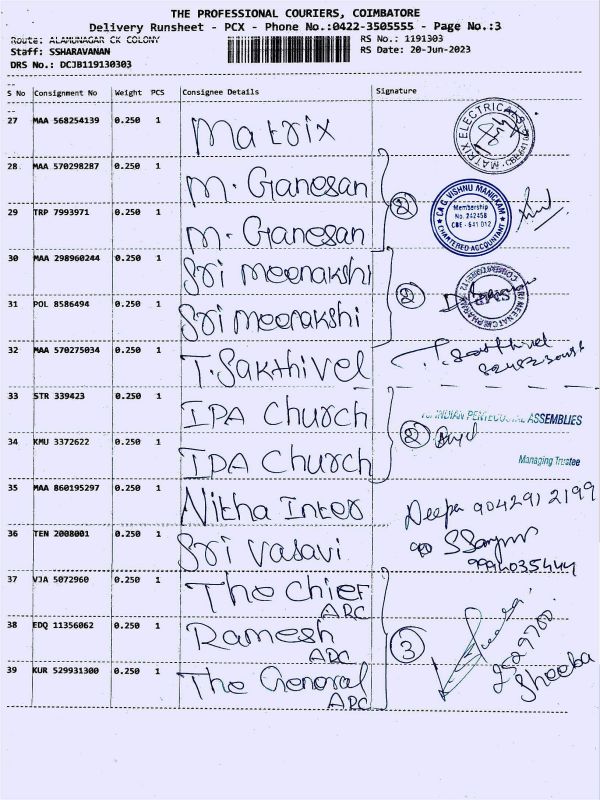 THE PROFESSIONAL COURIERS, COIMBATORE
Delivery Runsheet - PCX - Phone No.:0422-3505555 - Page No.:3
Route: ALAMUNAGAR CK COLONY
RS No.: 1191303
Staff: SSHARAVANAN
RS Date: 20-Jun-2023
DRS No.: DCJB119130303
S No Consignment No Weight PCS Consignee Details Signature
27 MAA 568254139 0.250 1 Matrix MATRIX ELECTRICALS
28 MAA 570298287 0.250 1 M. Ganesan
2 CA G. VISHNU MANICKAM
Membership
No. 242458
CBE - 641 012
CHARTERED ACCOUNTANT
29 TRP 7993971 0.250 1 M. Ganesan
30 MAA 298960244 0.250 1 Sri Meenakshi
2
31 POL 8586494 0.250 1 Sri Meenakshi
32 MAA 570275034 0.250 1 T. Sakthivel T. Sakthivel
33 STR 339423 0.250 1 IPA Church
INDIAN PENTECOSTAL ASSEMBLIES
2
34 KMU 3372622 0.250 1 IPA Church
Managing Trustee
35 MAA 860195297 0.250 1 Nitha Inter Deepa 9042912199
36 TEN 2008001 0.250 1 Sri Vasavi
9994035444
37 VJA 5072960 0.250 1 The Chief
ARC
38 EDQ 11356062 0.250 1 Ramesh
ARC
3
39 KUR 529931300 0.250 1 The General
ARC
Sheeba